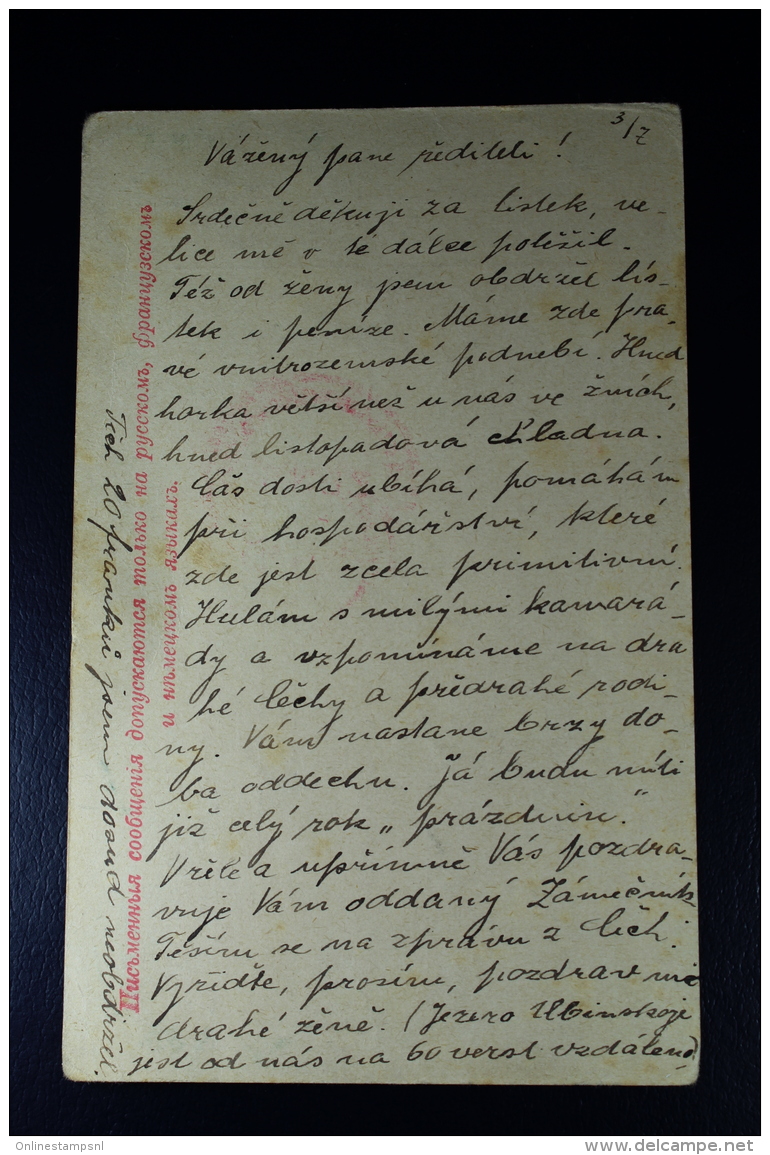 3/7
Vážený pane řediteli!
Srdečně děkuji za lístek, ve-
lice mě v té dálce potěšil.
Též od ženy jsem obdržel lís-
tek i peníze. Máme zde pra-
vé vnitrozemské podnebí. Hned
horka větší než u nás ve žních,
hned listopadová chladna.
Čas dosti ubíhá, pomáhám
při hospodářství, které
zde jest zcela primitivní.
Hulám s milými kamará-
dy a vzpomínáme na dra
hé Čechy a předrahé rodi-
ny. Vám nastane brzy do-
ba oddechu. Já budu míti
již celý rok „prázdnin."
Vřele a upřímně Vás pozdra-
vuje Vám oddaný Zámečník
Těším se na zprávu z Čech.
Vyřiďte, prosím, pozdrav mé
drahé ženě. (Jezero Ubinskoje
jest od nás na 60 verst vzdáleno)
Těch 20 franků jsem dosud neobdržel.
Письменныя сообщенія допускаются только на русскомъ, французскомъ
и нѣмецкомъ языкахъ.
Onlinestampsnl
delcampe.net